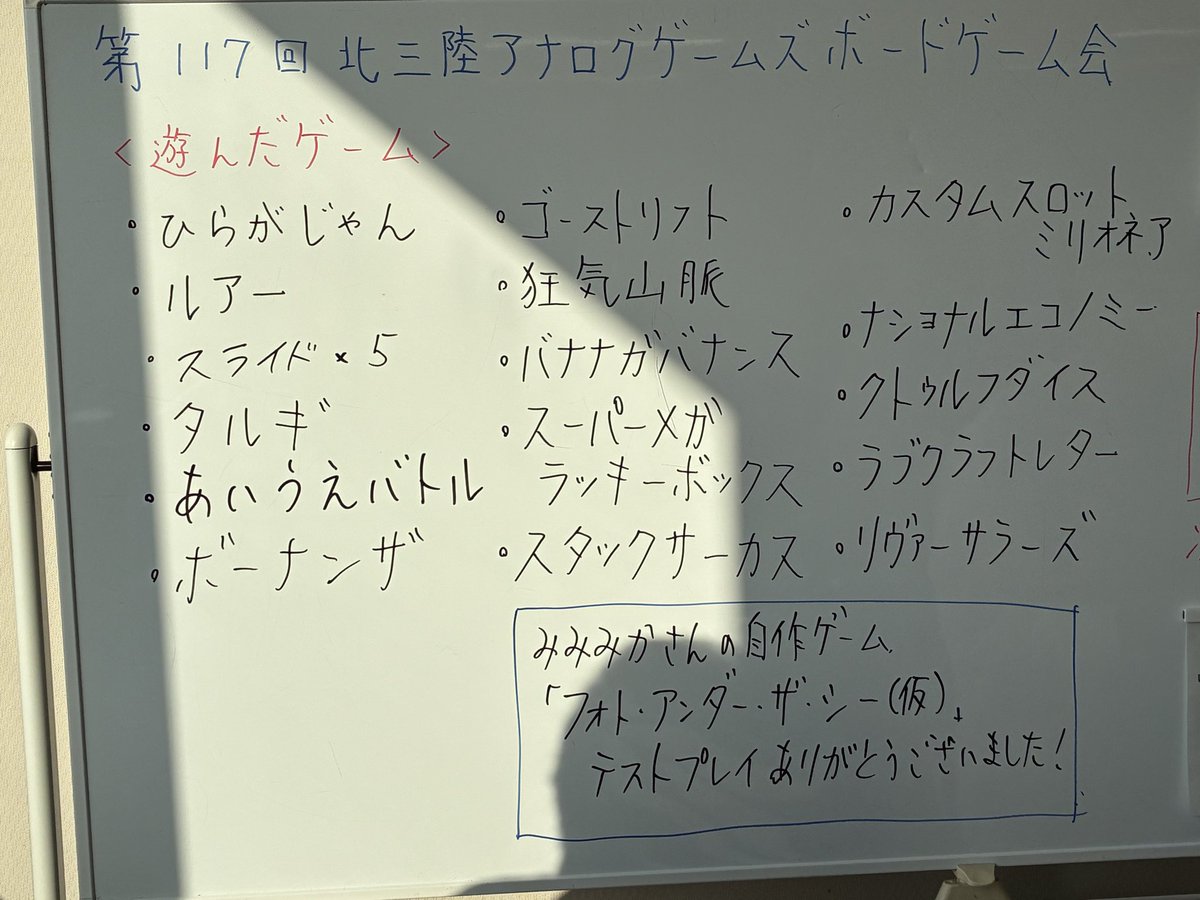 第117回 北三陸アナログゲームズボードゲーム会
<遊んだゲーム>
・ひらがじゃん
・ルアー
・スライド×5
・タルギ
・あいうえバトル
・ボーナンザ
・ゴーストリフト
・狂気山脈
・バナナガバナンス
・スーパーメガ
ラッキーボックス
・スタックサーカス
・カスタムスロット
ミリオネア
・ナショナルエコノミー
・クトゥルフダイス
・ラブクラフトレター
・リヴァーサラーズ
みみみかさんの自作ゲーム
「フォト・アンダー・ザ・シー(仮)」
テストプレイありがとうございました!